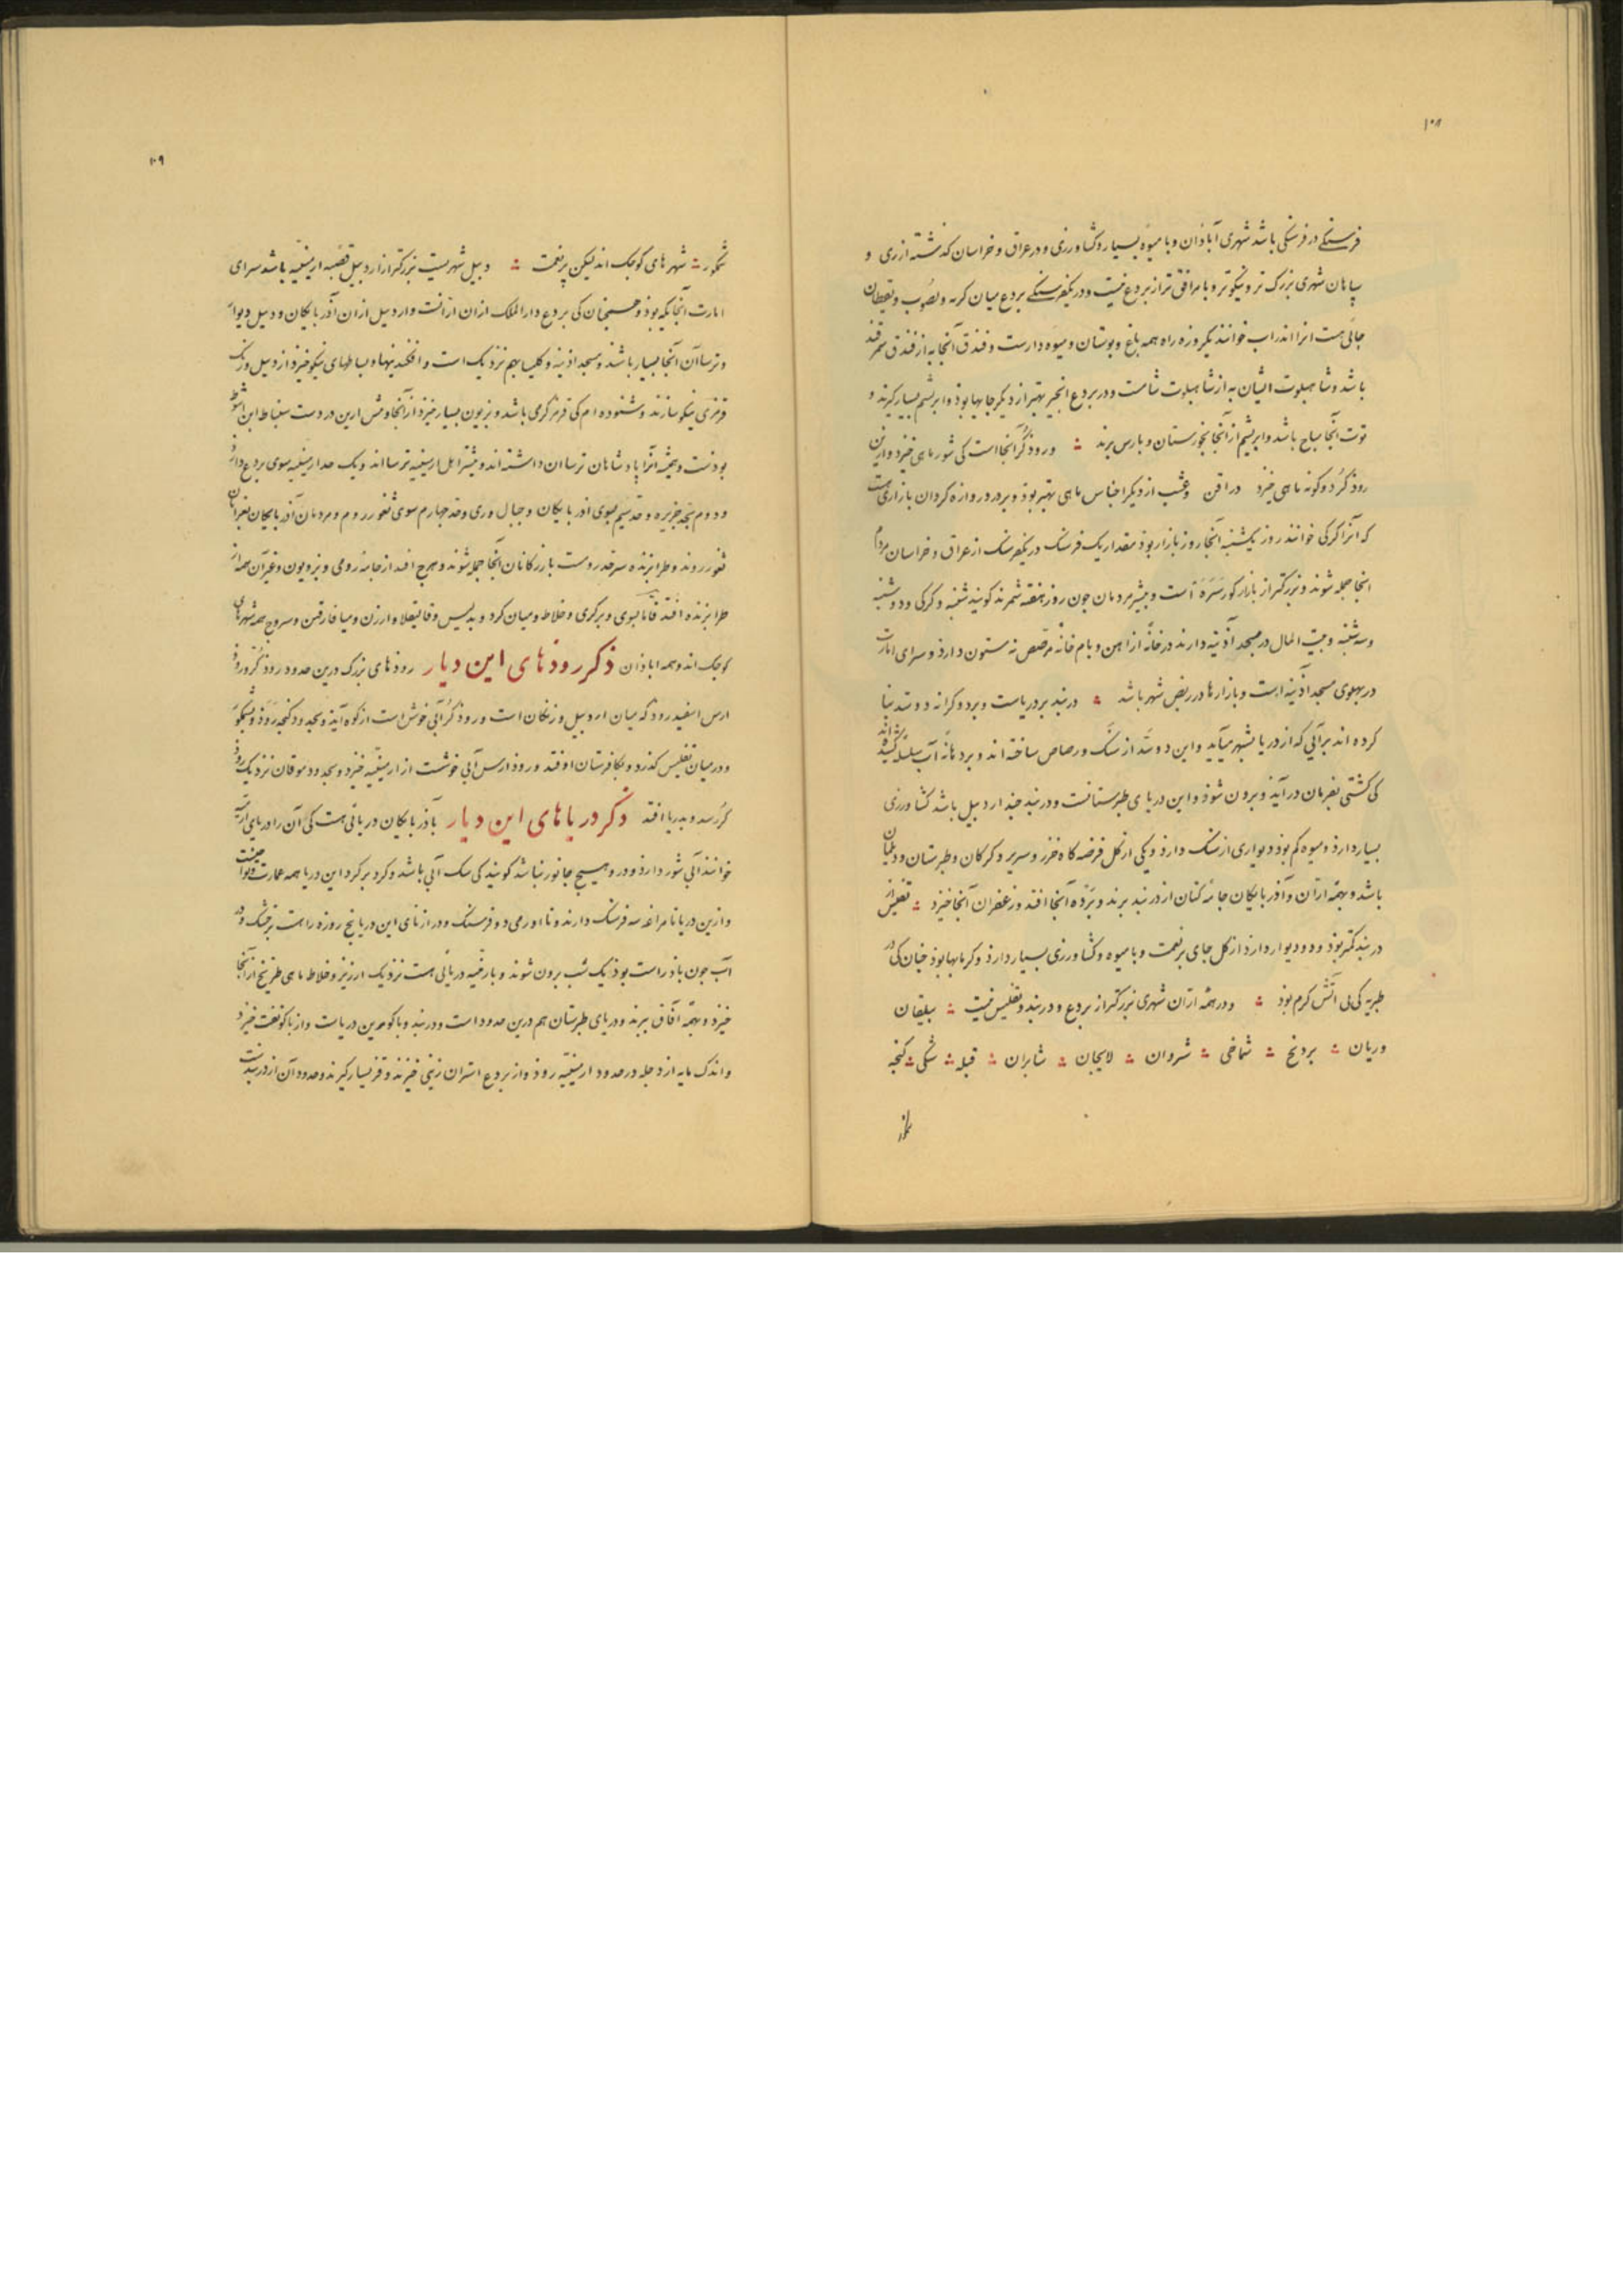 ۱۰۸
فرسنگی در فرسنگی باشد شهری آباذان و با میوهٔ بسیار و کشاورزی و در عراق و خراسان گذشته از ری و
سپاهان شهری بزرگ تر و نیکوتر و با مرافق تر از بردع نیست و در یکفرسنگی بردع میان کرنه و لصوب و یقطان
جائی هست انرا اندراب خوانند یکروزه راه همه باغ و بوستان و میوه دارست و فندق آنجا به از فندق سمرقند
باشد و شاهبلوت ایشان به از شاهبلوت شامست و در بردع انجیر بهتر از دیگر جایها بوذ و ابریشم بسیار گیرند و
توت آنجا مباح باشد و ابریشم از آنجا بخورستان و بارس برند ∴ و روذ کُر آنجا است کی شور ماهی خیزد و ازین
روذ کُر دو گونه ماهی خیزد دراقن و عشب از دیگر اجناس ماهی بهتر بوذ و بر در دروازه کردان بازاری هست
که آنرا کرکی خوانند روز یکشنبه آنجا روز بازار بوذ مقدار یک فرسنگ در یکفرسنگ از عراق و خراسان مردم
اینجا جمله شوند و بزرگتر از بازار کورسَرَه است و بیشتر مردمان جون روز هفته شمرند گویند شنبه و کرکی و دوشنبه
و سه شنبه و بیت المال در مسجد آذینه دارند در خانهٔ از اهن و بام خانه مرصص نه ستون دارذ و سرای امارت
در بهلوی مسجد اذینه است و بازارها در ربض شهر باشد ∴ دربند بر دریاست و بر دو کرانه دو سد بنا
کرده اند بر آبی که از دریا بشهر میآید و این دو سَد از سنگ و رصاص ساخته اند و بر دهانهٔ آب سلسله کشیده اند
کی کشتی بفرمان در آیذ و برون شوذ و این دریای طبرستانست و دربند جند اردبیل باشد کشاورزی
بسیار دارذ و میوه کم بوذ و دیواری از سنگ دارذ و یکی از گل فرضه کاه خزر و سریر و کرکان و طبرستان و دیلمان
باشد و بهمه ارّان و آذربایکان جامهٔ کتان از دربند برند و برده آنجا افتد و زعفران آنجا خیزد ∴ تفلیس از
دربند کمتر بوذ و دو دیوار دارذ از گل جای پر نعمت و با میوه و کشاورزی بسیار دارذ و کرمابها بوذ جنان کی در
طبریه کی بی اتش کرم بوذ ∴ و در همه ارّان شهری بزرگتر از بردع و دربند و تفلیس نیست ∴ بیلقان
وریان ∴ بردنج ∴ شماخی ∴ شروان ∴ لایجان ∴ شابران ∴ قبله ∴ شکی ∴ کنجه
۱۰۹
شمکور ∴ شهرهای کوجک اند لیکن پر نعمت ∴ دبیل شهریست بزرگتر از اردبیل قصبهٔ ارمینیّه باشد سرای
امارت آنجایکه بوذ و همجنان کی بردع دارالملک ازان ارّانست و اردبیل ازان آذربایکان و دبیل دیوار
و ترساآن آنجا بسیار باشند و مسجد اذینه و کلیسا بهم نزدیک است و افکندنیها و بساطهای نیکو خیزذ از دبیل و رنک
قرمزی نیکو سازند و شنوده ام کی قرمز کرمی باشد و بزیون بسیار خیزد از آنجا و مس ارین در دست سنباط ابن اشوط
بوذست و همیشه آنرا پادشاهان ترساان داشته اند و بیشتر اهل ارمینیه ترسااند و یک حد ارمینیه سوی بردع دارذ
و دوم بحد جزیره و حد سیم بسوی اذربایکان و جبال و ری و حد جهارم سوی ثغور روم و مردمان آذربایکان بغزا بان
ثغور روند و طرابزنده سر حد روم است بازرکانان آنجا جمله شوند و هرج افتد از جامهٔ رومی و بزویون و غیر آن همه از
طرابزنده افتد بوی و برکری و خلاط و میان کرد و بدلیس و قالیقلا و ارزن و میافارقین و سروج همه شهرهای
کوجک اند و همه اباذان ذکر روذهای این دیار روذهای بزرگ درین حدود روذ کُر و روذ
ارس اسفیدروذ که میان اردبیل و زنکان است و روذ کُر آبی خوش است از کوه آیذ و بحدود کنجه رَوَذ و شمکور
و در میان تفلیس کذرد و بکافرستان اوفتد و روذ ارس آبی خوشست از ارمینیّه خیزد و بحدود موقان نزدیک روذ
کُر رسد و بدریا افتد ذکر دریاهای این دیار باذربایکان دریائی هست کی آن را دریای ارمیه
خوانند آبی شور دارذ و درو هیج جانور نباشد گویند کی سک آبی باشد و کرد بر کرد این دریا همه عمارت و نواحیست
و ازین دریا تا مراغه سه فرسنگ دارند و تا اورمی دو فرسنگ و درازنای این دریا پنج روزه راهست بر خشک و در
آب جون باذ راست بوذ یک شب برون شوند و بارمنیه دریائی هست نزدیک ارزیز و خلاط ماهی طریخ از آنجا
خیزد و بهمه آفاق ببرند و دریای طبرستان هم درین حدود است و دربند و باکو برین دریاست و از باکو نفت خیزد
و اندک مایه از دجله در حدود ارمینیّه رود و از بردع استران زینی خیزند و قز بسیار گیرند و حدود آن از دربندست